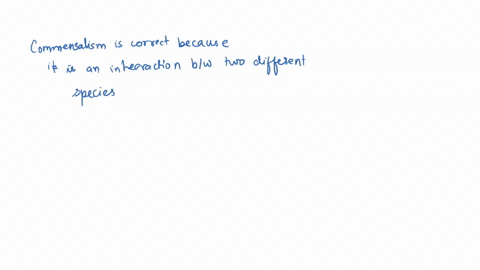 Commensalism is correct because
it is an interaction b/w two different
species